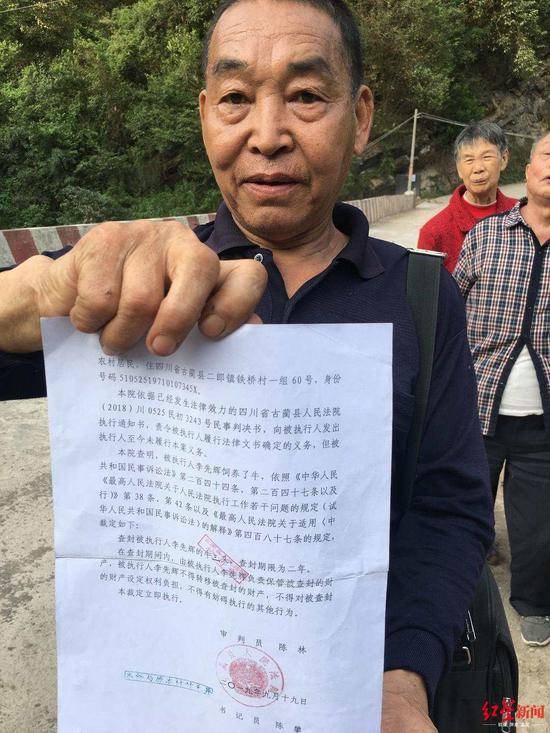 农村居民，住四川省古蔺县二郎镇铁桥村一组60号，身份
号码51052519710107345X。
本院依据已经发生法律效力的四川省古蔺县人民法院
（2018）川0525民初3243号民事判决书，向被执行人发出
执行通知书，责令被执行人履行法律文书确定的义务，但被
执行人至今未履行本案义务。
本院查明，被执行人李先辉饲养了牛，依照《中华人民
共和国民事诉讼法》第二百四十四条，第二百四十七条以及
《最高人民法院关于人民法院执行工作若干问题的规定（试
行）》第38条，第42条以及《最高人民法院关于适用〈中
华人民共和国民事诉讼法〉的解释》第四百八十七条的规定，
裁定如下：
查封被执行人李先辉的牛 查封期限为二年。
在查封期间内，由被执行人李先辉负责保管被查封的财
产，被执行人李先辉不得转移被查封的财产，不得对被查封
的财产设定权利负担，不得有妨碍执行的其他行为。
本裁定立即执行。
审判员 陈林
二〇一九年九月十九日
书记员 陈肇
红星新闻